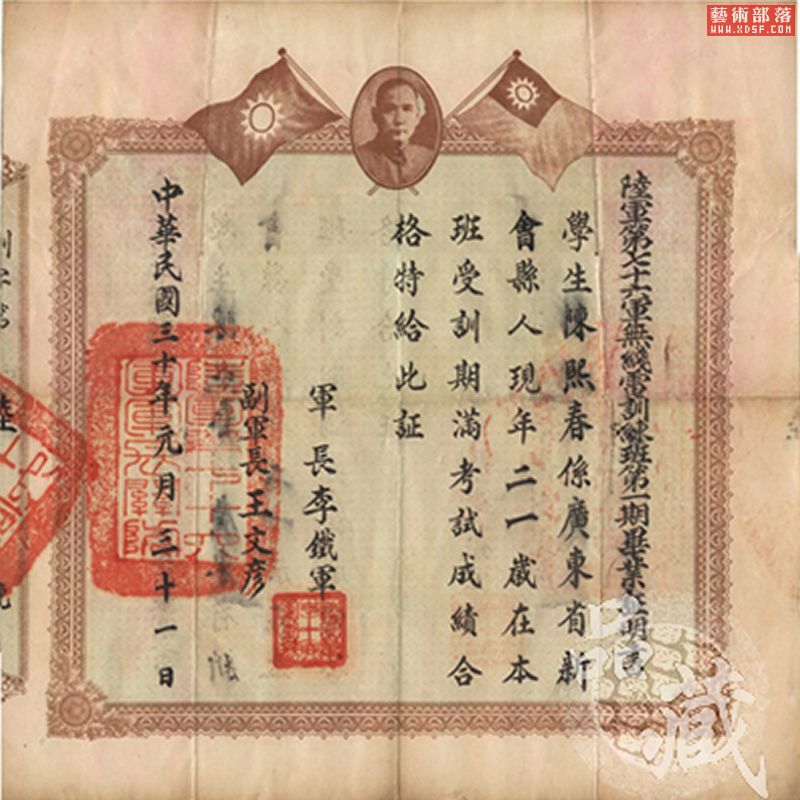 藝術部落
www.XDSF.com
陸軍第七十六軍無綫電訓練班第一期畢業証明書
學生陳熙春係廣東省新
會縣人現年二一歲在本
班受訓期滿考試成績合
格特給此証
軍長李鐵軍
副軍長王文彦
中華民國三十年元月三十一日
品藏